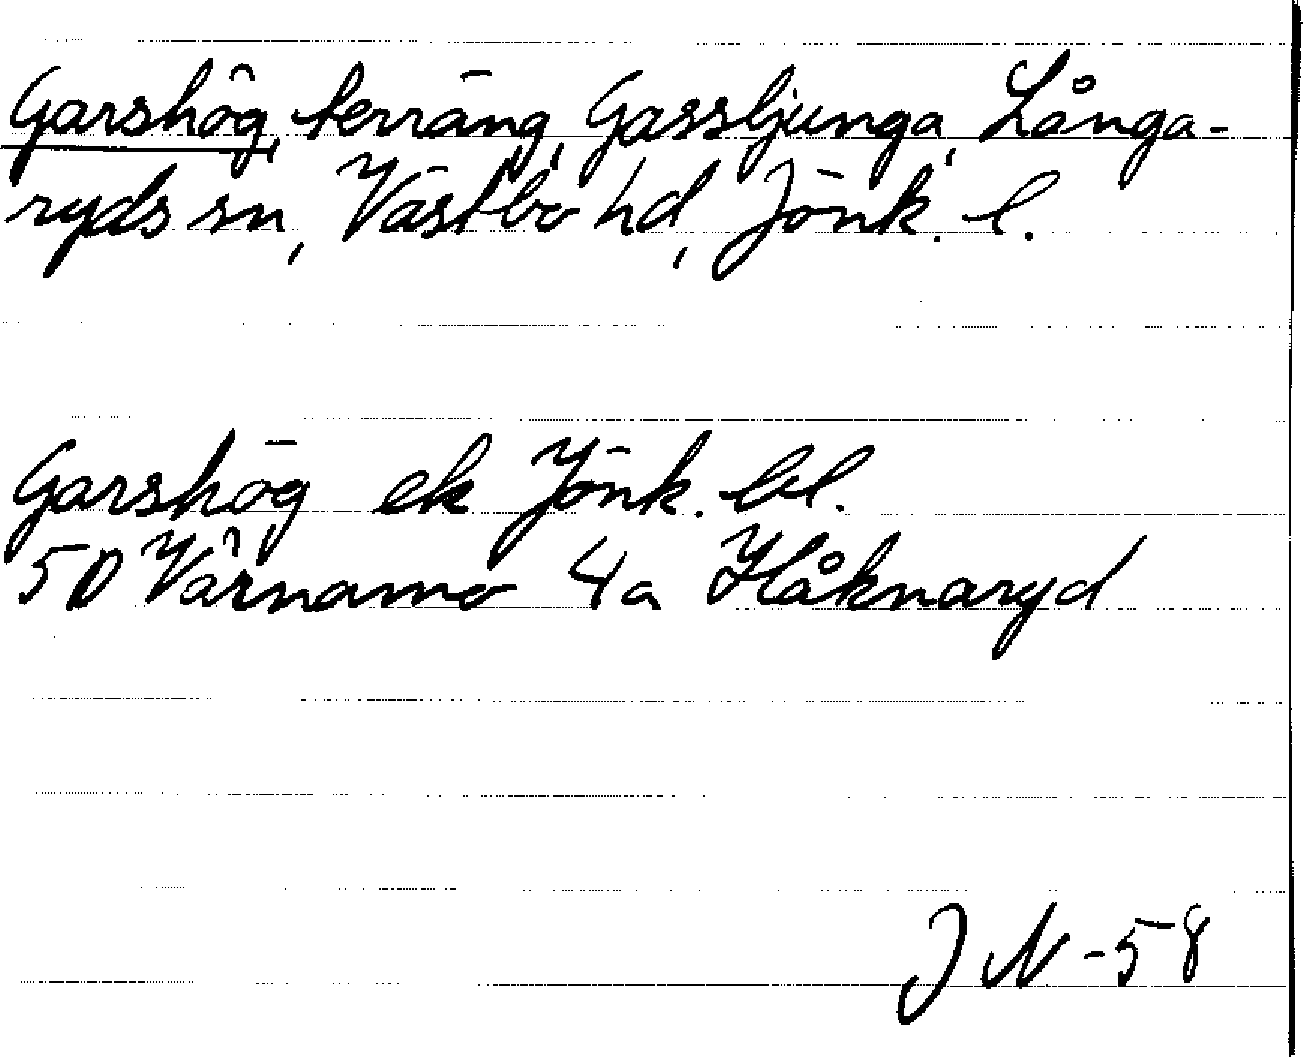 Garshög, terräng, Gassljunga, Långa-
ryds sn, Västbo hd, Jönk. l.
Garshög ek Jönk. bl.
5D Värnamo 4a Håknaryd
J N -58